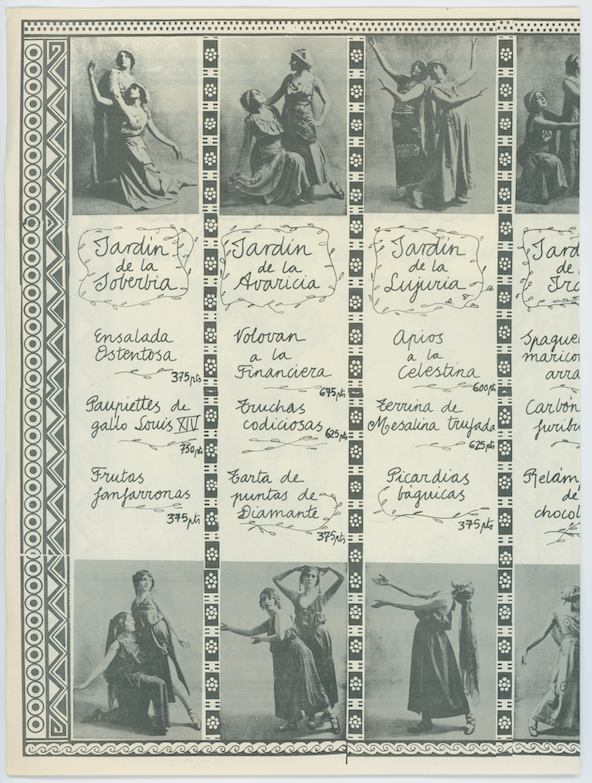 Jardin
de la
Soberbia
Ensalada
Ostentosa
375 pts
Paupiettes de
gallo Louis XIV
750 pts
Frutas
fanfarronas
375 pts
Jardin
de la
Avaricia
Volovan
a la
Financiera
675 pts
Truchas
codiciosas
625 pts
Tarta de
puntas de
Diamante
375 pts
Jardin
de la
Lujuria
Apios
a la
Celestina
600 pts
Terrina de
Mesalina trufada
625 pts
Picardias
báquicas
375 pts
Jard
de
Ira
Spague
marico
arra
Carbón
furibu
Relám
de
chocol